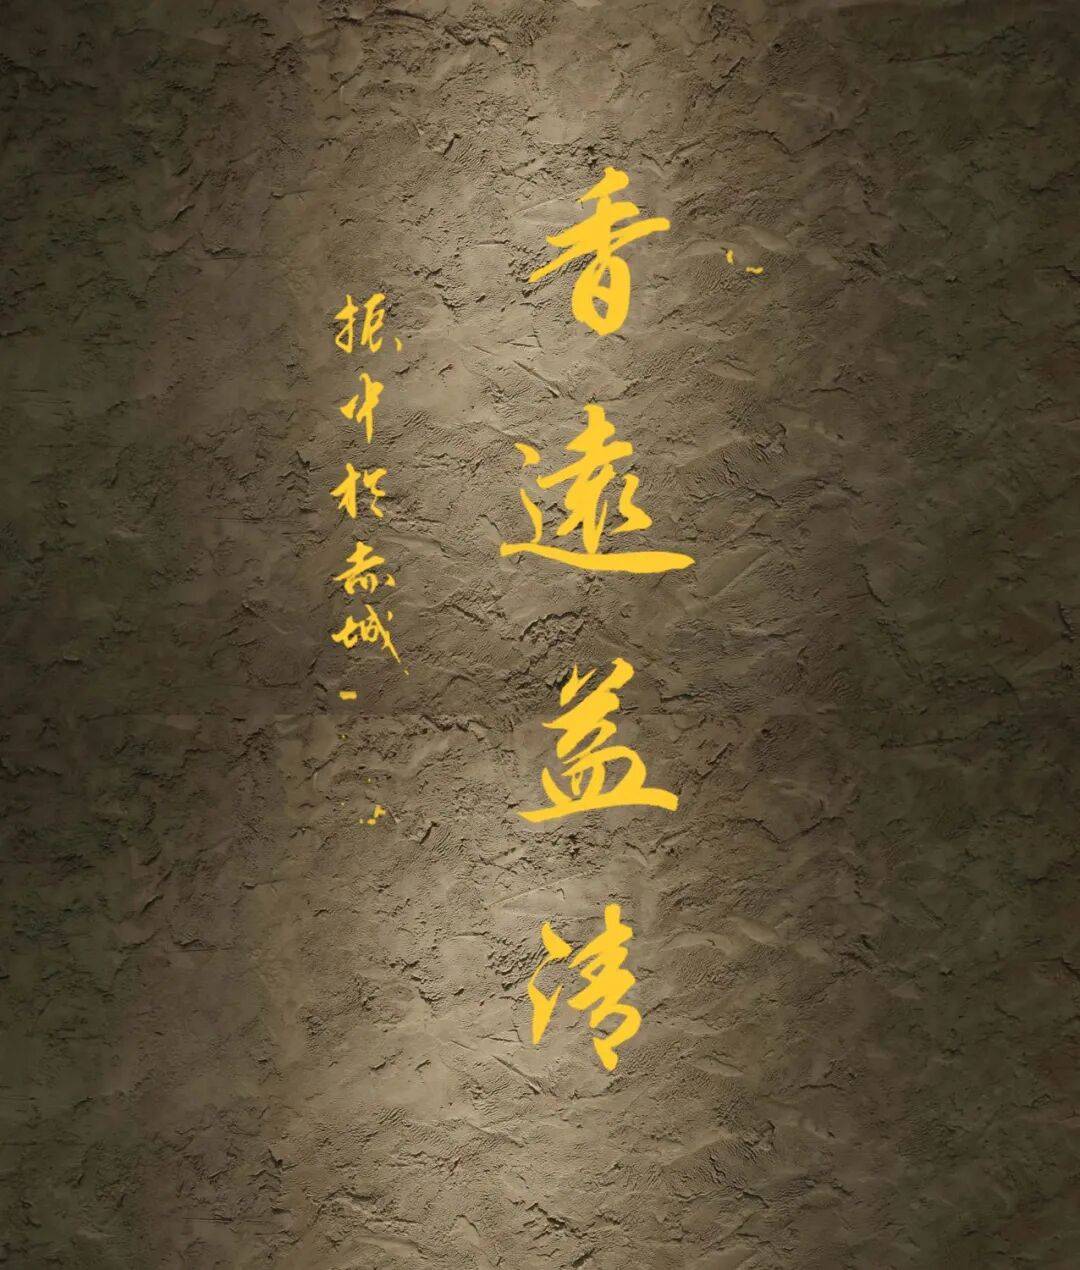 香遠益清
振中於赤城